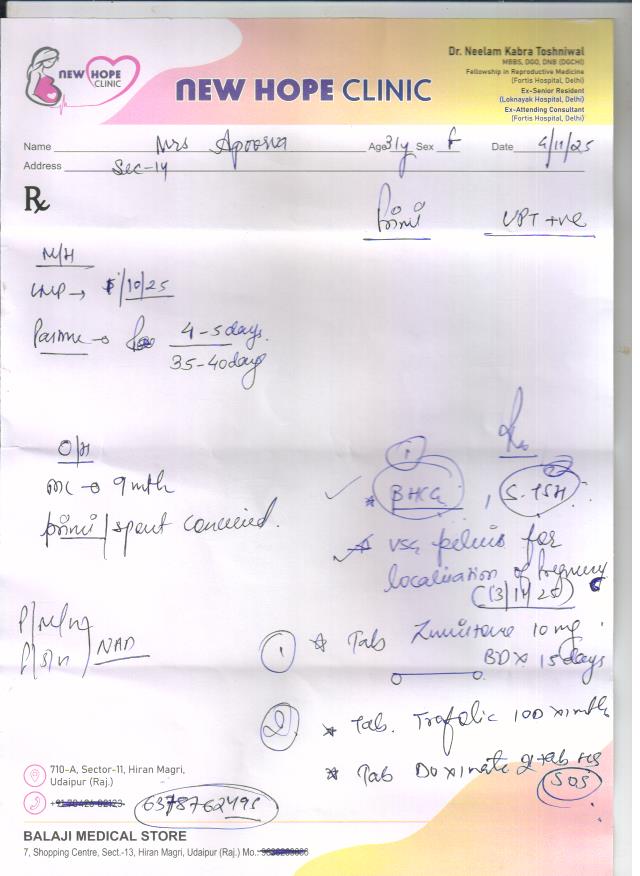 NEW HOPE
CLINIC
NEW HOPE CLINIC
Dr. Neelam Kabra Toshniwal
MBBS, DGO, DNB (DGCHI)
Fellowship in Reproductive Medicine
(Fortis Hospital, Delhi)
Ex-Senior Resident
(Loknayak Hospital, Delhi)
Ex-Attending Consultant
(Fortis Hospital, Delhi)
Name Mrs Apoorva Age 31y Sex F Date 4/11/25
Address Sec-14
Rx
Primi UPT +ve
M/H
LMP → 5/10/25
4-5 days
35-40 days
O/H
mc → 9 mth
primi / spont conceived.
1
* BHCG , S.TSH
* USG pelvis for
localisation of pregnancy
(13/11/25)
P/M/H
P/S/H NAD
1 * Tab 10 mg
BD X 15 days
2 * Tab. Trofolic 100 X 1 mth
* Tab Doxinate 2 tab HS
SOS
710-A, Sector-11, Hiran Magri,
Udaipur (Raj.)
BALAJI MEDICAL STORE
7, Shopping Centre, Sect.-13, Hiran Magri, Udaipur (Raj.) Mo.: